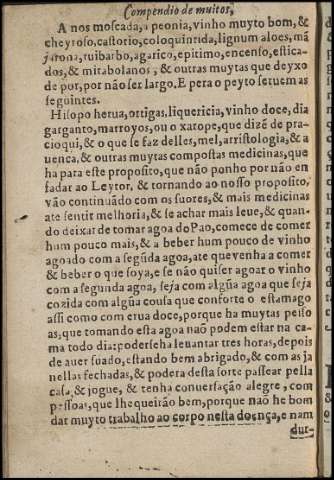 Compendio de muitos,
A nos moscada, a peonia, vinho muyto bom, &
cheyroso, castorio, coloquintida, lignum aloes, mã
jarona, ruibarbo, agarico, epitimo, encenso, estica-
dos, & mirabolanos, & outras muytas que deyxo
de por, por não ser largo. E pera o peyto seruem as
seguintes.
Hisopo herua, ortigas, liquericia, vinho doce, dia
garganto, marroyos, ou o xarope, que dizẽ de pra-
cioqui, & o que se faz delles, mel, arristologia, & a
uenca, & outras muytas compostas medicinas, que
ha para este proposito, que não ponho por não en
fadar ao Leytor, & tornando ao nosso proposito,
vão continuãdo com os suores, & mais medicinas
ate sentir melhoria, & se achar mais leue, & quan-
do deixar de tomar agoa do Pao, comece de comer
hum pouco mais, & a beber hum pouco de vinho
agoado com a segũda agoa, ate que venha a comer
& beber o que soya, e se não quiser agoar o vinho
com a segunda agoa, seja com algũa agoa que seja
cozida com algũa cousa que conforte o estamago
assi como com erua doce, porque ha muytas pesso
as, que tomando esta agoa naõ podem estar na ca-
ma todo dia: poderseha leuantar tres horas, depois
de auer suado, estando bem abrigado, & com as ja
nellas fechadas, & podera desta sorte passear pella
casa, & jogue, & tenha conuersação alegre, com
pessoas, que lhe queirão bem, porque naõ he bom
dar muyto trabalho ao corpo nesta doença, e nam
dur-